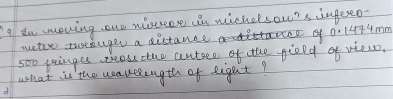 9 In moving one mirror in michelson's infero-
meter through a distance a distance of 0.1474 mm
500 fringes cross the centre of the field of view.
what is the wavelength of light ?